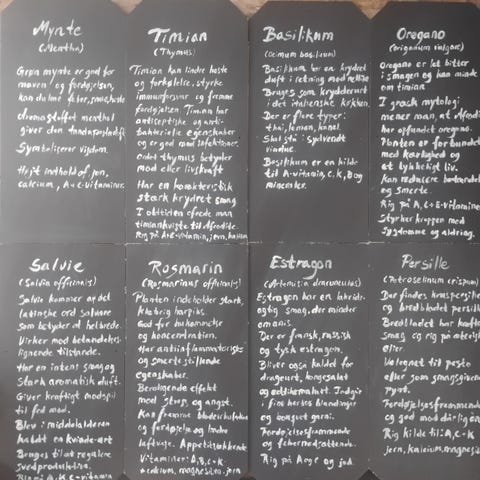 Mynte
(Mentha)
Grøn mynte er god for
maven og fordøjelsen,
kan dulme feber, smue, hoste
Aromastoffet menthol
giver den tandpastaduft
Symboliserer visdom.
Højt indhold af jern,
calcium, A+C-vitaminer
Timian
(Thymus)
Timian kan lindre hoste
og forkølelse, styrke
immunforsvar og fremme
fordøjelsen. Timian har
antiseptiske og anti-
bakterielle egenskaber
og er god mod infektioner.
Ordet thymus betyder
mod eller livskraft
Har en karakteristisk
stærk krydret smag
I oldtiden ofrede man
timiankviste til Afrodite
Rig på A+C-vitamin, jern,
Basilikum
(Ocimum basilicum)
Basilikum har en krydret
duft i retning med nellike
Bruges som krydderurt
i det italienske køkken.
Der er flere typer:
thai, lemon, kanel.
Skal stå i sydvendt
vindue.
Basilikum er en kilde
til A-vitamin, C, K, D og
mineraler.
Oregano
(origanum vulgare)
Oregano er let bitter
i smagen og kan minde
om timian
I græsk mytologi
mener man, at Afrodite
har opfundet oregano.
Planten er forbundet
med kærlighed og
et lykkeligt liv.
Kan reducere betændelse
og smerte.
Rig på A, C+E-vitaminer
Styrker kroppen mod
sygdomme og aldring.
Salvie
(Salvia officinalis)
Salvie kommer af det
latinske ord salvare
som betyder at helbrede.
Virker mod betændelses-
lignende tilstande.
Har en intens smag og
stærk aromatisk duft.
Giver kraftigt modspil
til fed mad.
Blev i middelalderen
kaldt en kvinde-urt
Bruges til at regulere
svedproduktion.
Rig på A, K, C-vitamin
Rosmarin
(Rosmarinus officinalis)
Planten indeholder stærk,
klæbrig harpiks.
God for hukommelse
og koncentration.
Har antiinflammatoriske
og smertestillende
egenskaber.
Beroligende effekt
mod stress, og angst.
Kan fremme blodcirkulation
og fordøjelse og lindre
luftveje. Appetitvækkende
Vitaminer: A, B, C+K
+ calcium, magnesium, jern
Estragon
(Artemisia dracunculus)
Estragon har en lakrids-
agtig smag, der minder
om anis.
Der er fransk, russisk
og tysk estragon.
Bliver også kaldet
dragonurt, kongesalat
og Indgår
i fines herbes blandinger
og bouquet garni.
Fordøjelsesfremmende
og febernedsættende.
Rig på A og C og jod.
Persille
(Petroselinum crispum)
Der findes kruspersille
og bredbladet persille
Bredbladet har kraftig
smag og rig på æterisk
olie.
Velegnet til pesto
eller som smagsgivende
pynt.
Fordøjelsesfremmende
og god mod dårlig ånde
Rig kilde til: A, C+K
jern, kalcium, magnesium